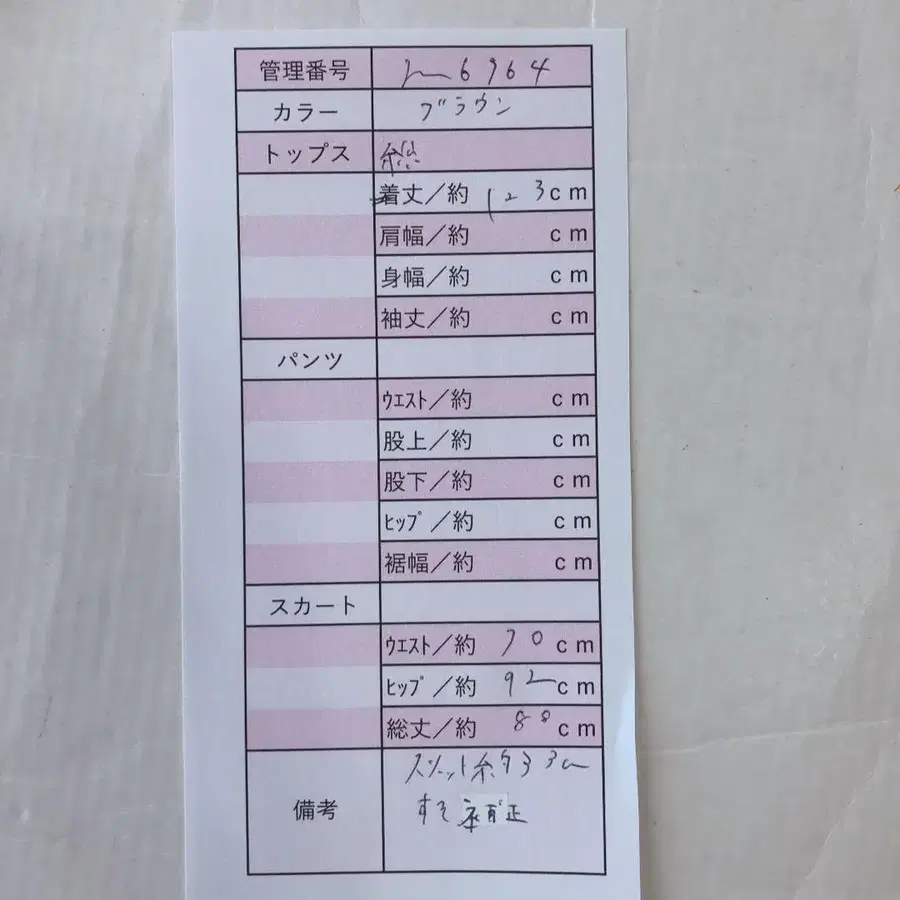 管理番号 m6964
カラー ブラウン
トップス 総
着丈／約 123cm
肩幅／約 cm
身幅／約 cm
袖丈／約 cm
パンツ
ウエスト／約 cm
股上／約 cm
股下／約 cm
ヒップ／約 cm
裾幅／約 cm
スカート
ウエスト／約 70cm
ヒップ／約 92cm
総丈／約 80cm
備考
スリット約33cm
すそ補正